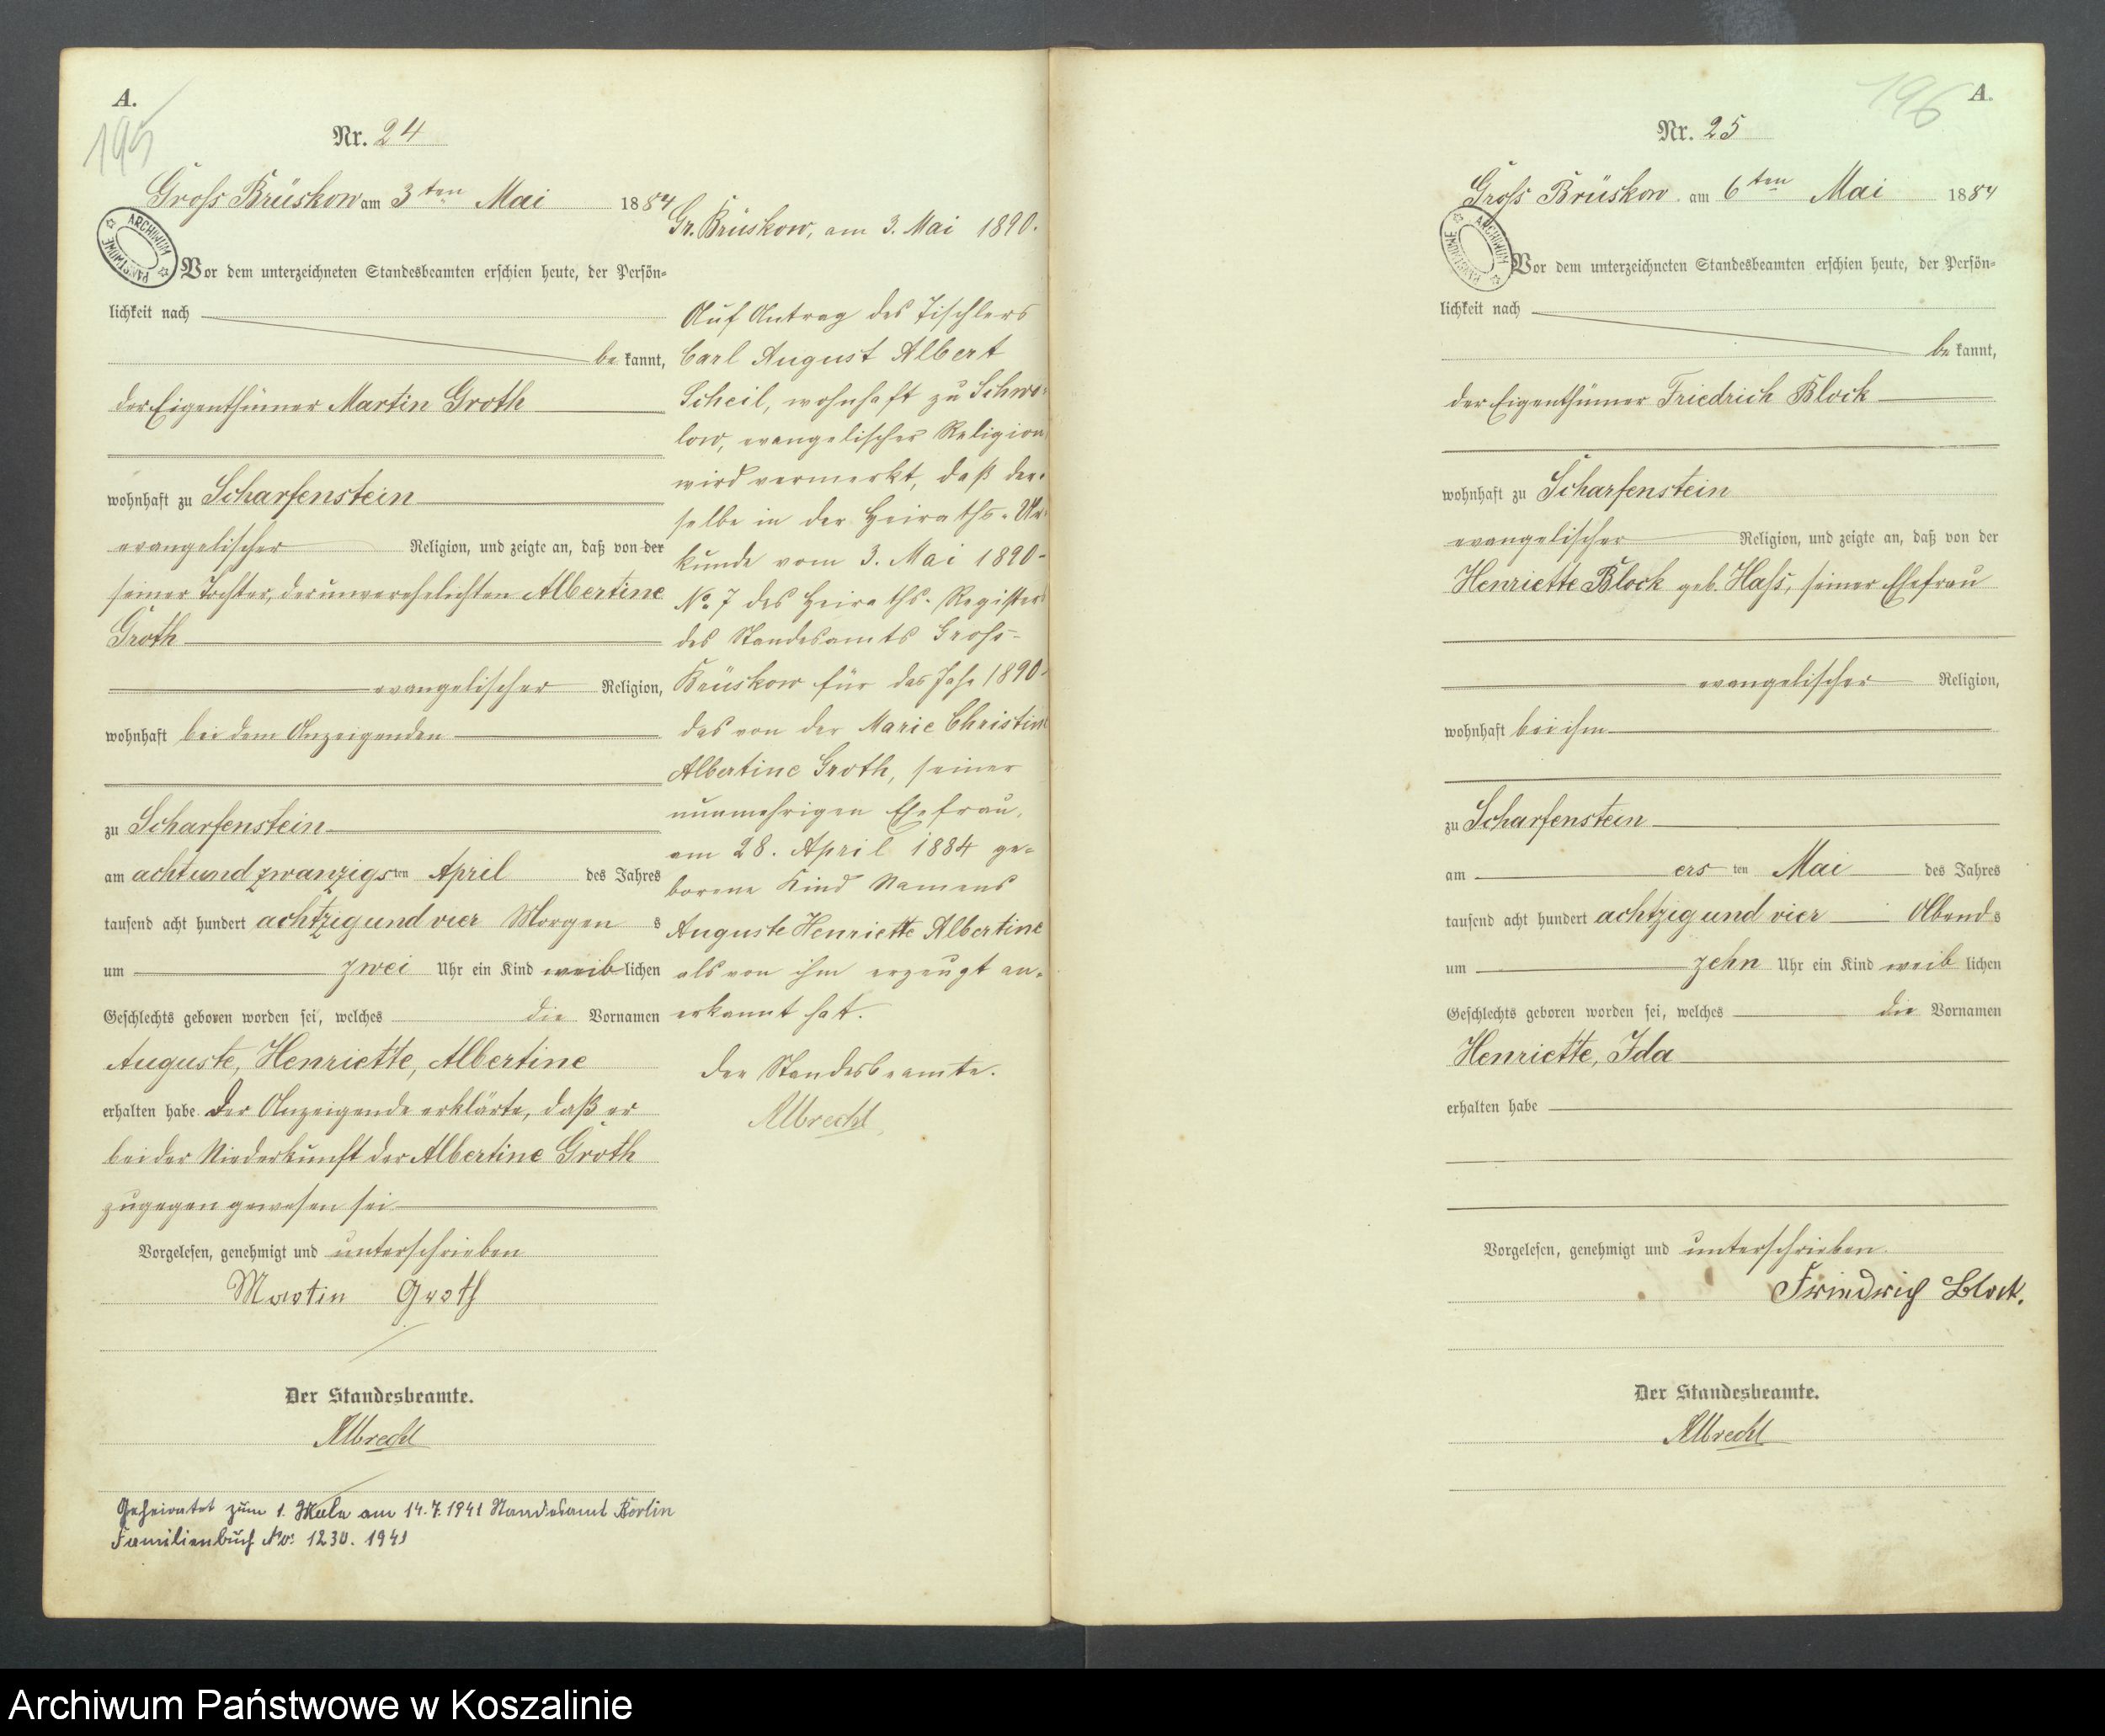 A.
195
Nr. 24
Gross Brüskow am 3ten Mai 1884
ARCHIWUM PAŃSTWOWE
Vor dem unterzeichneten Standesbeamten erschien heute, der Persön=
lichkeit nach
be kannt,
der Eigenthümer Martin Groth
wohnhaft zu Scharfenstein
evangelischer Religion, und zeigte an, daß von der
seiner Tochter, der unverehelichten Albertine
Groth
evangelischer Religion,
wohnhaft bei dem Anzeigenden
zu Scharfenstein
am achtundzwanzigsten April des Jahres
tausend acht hundert achtzig und vier Morgens
um zwei Uhr ein Kind weiblichen
Geschlechts geboren worden sei, welches die Vornamen
Auguste, Henriette, Albertine
erhalten habe. Der Anzeigende erklärte, daß er
bei der Niederkunft der Albertine Groth
zugegen gewesen sei
Vorgelesen, genehmigt und unterschrieben
Martin Groth
Der Standesbeamte.
Albrecht
Geheiratet zum 1. Male am 14.7.1941 Standesamt
Familienbuch No: 1230. 1941
Gr. Brüskow, am 3. Mai 1890.
Auf Antrag des Tischlers
Carl August Albert
Scheil, wohnhaft zu Schwo=
low, evangelischer Religion,
wird vermerkt, daß der=
selbe in der Heiraths=Ur=
kunde vom 3. Mai 1890
No 7 des Heiraths-Registers
des Standesamts Gross=
Brüskow für das Jahr 1890
das von der Marie Christine
Albertine Groth, seiner
nunmehrigen Ehefrau,
am 28. April 1884 ge=
borene Kind Namens
Auguste Henriette Albertine
als von ihm erzeugt an=
erkannt hat.
Der Standesbeamte.
Albrecht
196
A.
Nr. 25
Gross Brüskow am 6ten Mai 1884
ARCHIWUM PAŃSTWOWE
Vor dem unterzeichneten Standesbeamten erschien heute, der Persön=
lichkeit nach
be kannt,
der Eigenthümer Friedrich Block
wohnhaft zu Scharfenstein
evangelischer Religion, und zeigte an, daß von der
Henriette Block geb. Hass, seiner Ehefrau
evangelischer Religion,
wohnhaft bei ihm
zu Scharfenstein
am ersten Mai des Jahres
tausend acht hundert achtzig und vier Abends
um zehn Uhr ein Kind weiblichen
Geschlechts geboren worden sei, welches die Vornamen
Henriette, Ida
erhalten habe
Vorgelesen, genehmigt und unterschrieben.
Friedrich Block.
Der Standesbeamte.
Albrecht
Archiwum Państwowe w Koszalinie